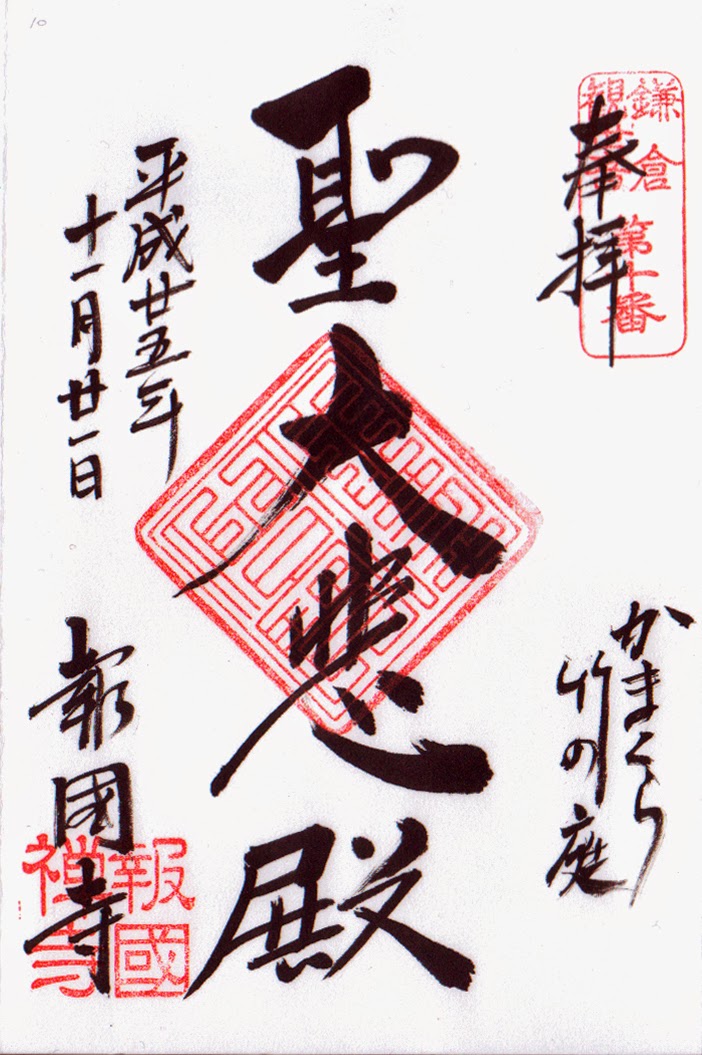 奉拝
鎌倉
観音
第十番
かまくら
竹の庭
聖大悲殿
平成廿五年
十一月廿一日
報國寺
報國
禅寺
10